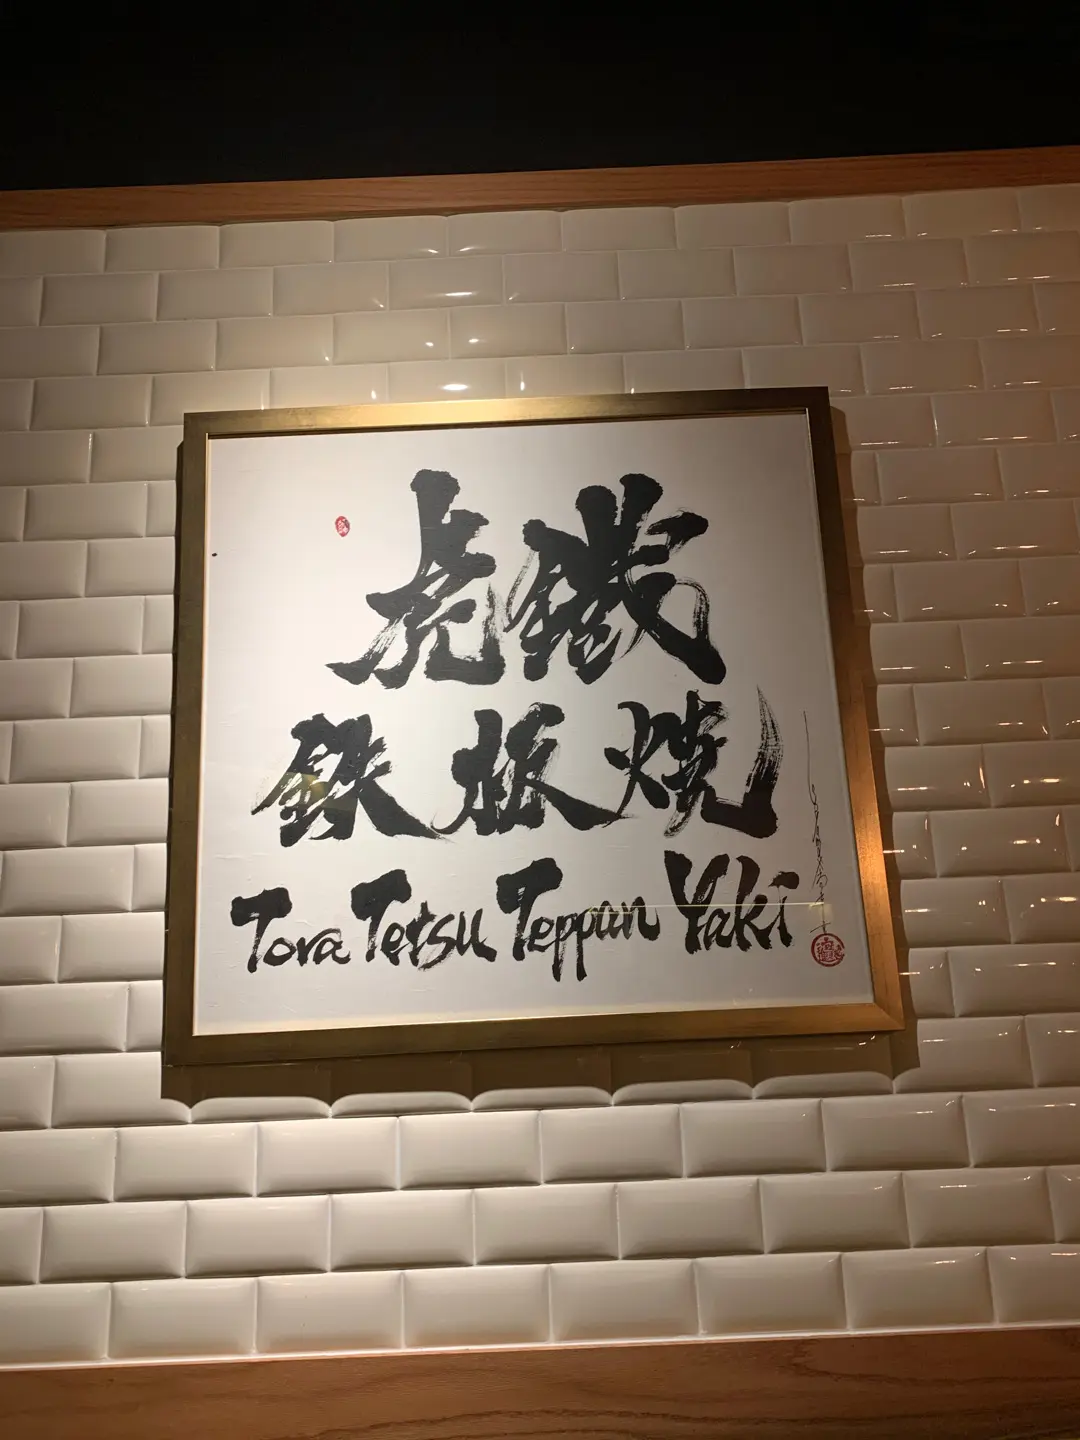 虎鐵
鉄板焼
Tora Tetsu Teppan Yaki